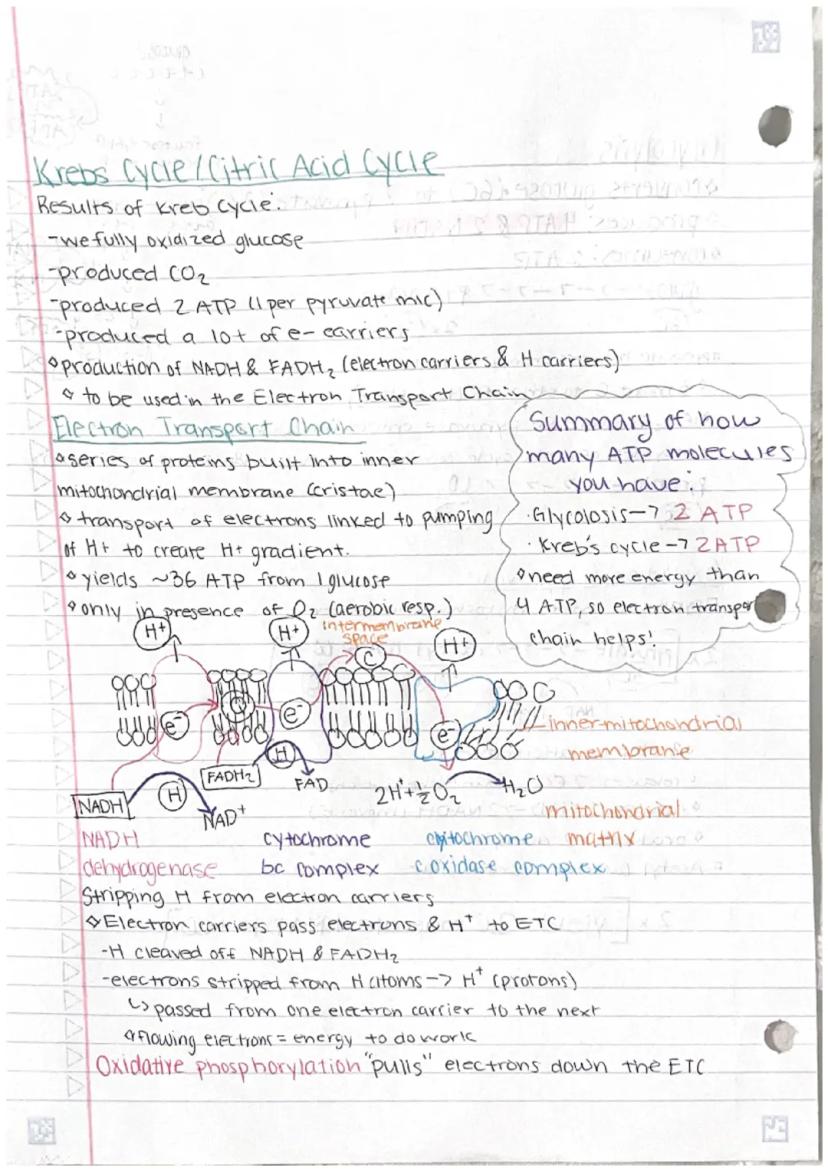 Krebs Cycle/Citric Acid Cycle
Results of Kreb Cycle:
-we fully oxidized glucose
-produced CO2
-produced 2 ATP (1 per pyruvate mlc)
-produced a lot of e- carriers
◊production of NADH & FADH2 (electron carriers & H carriers)
◊ to be used in the Electron Transport Chain
Electron Transport Chain
◊series of proteins built into inner
mitochondrial membrane (cristae)
◊ transport of electrons linked to pumping
of H+ to create H+ gradient.
◊yields ~36 ATP from 1 glucose
◊only in presence of O2 (aerobic resp.)
Summary of how
many ATP molecules
you have:
·Glycolosis→ 2 ATP
·Kreb's cycle → 2ATP
◊need more energy than
4 ATP, so electron transpor
chain helps!
H+
H+
intermembrane
space
C
H+
Q
e-
e-
e-
inner mitochondrial
membrane
H
FADH2
FAD
NADH
H
NAD+
2H+ + ½ O2
H2O
mitochondrial
matrix
NADH
dehydrogenase
cytochrome
bc complex
cytochrome
c oxidase complex
Stripping H from electron carriers
◊Electron carriers pass electrons & H+ to ETC
-H cleaved off NADH & FADH2
-electrons stripped from H atoms → H+ (protons)
↳ passed from one electron carrier to the next
◊flowing electrons = energy to do work
Oxidative phosphorylation "pulls" electrons down the ETC